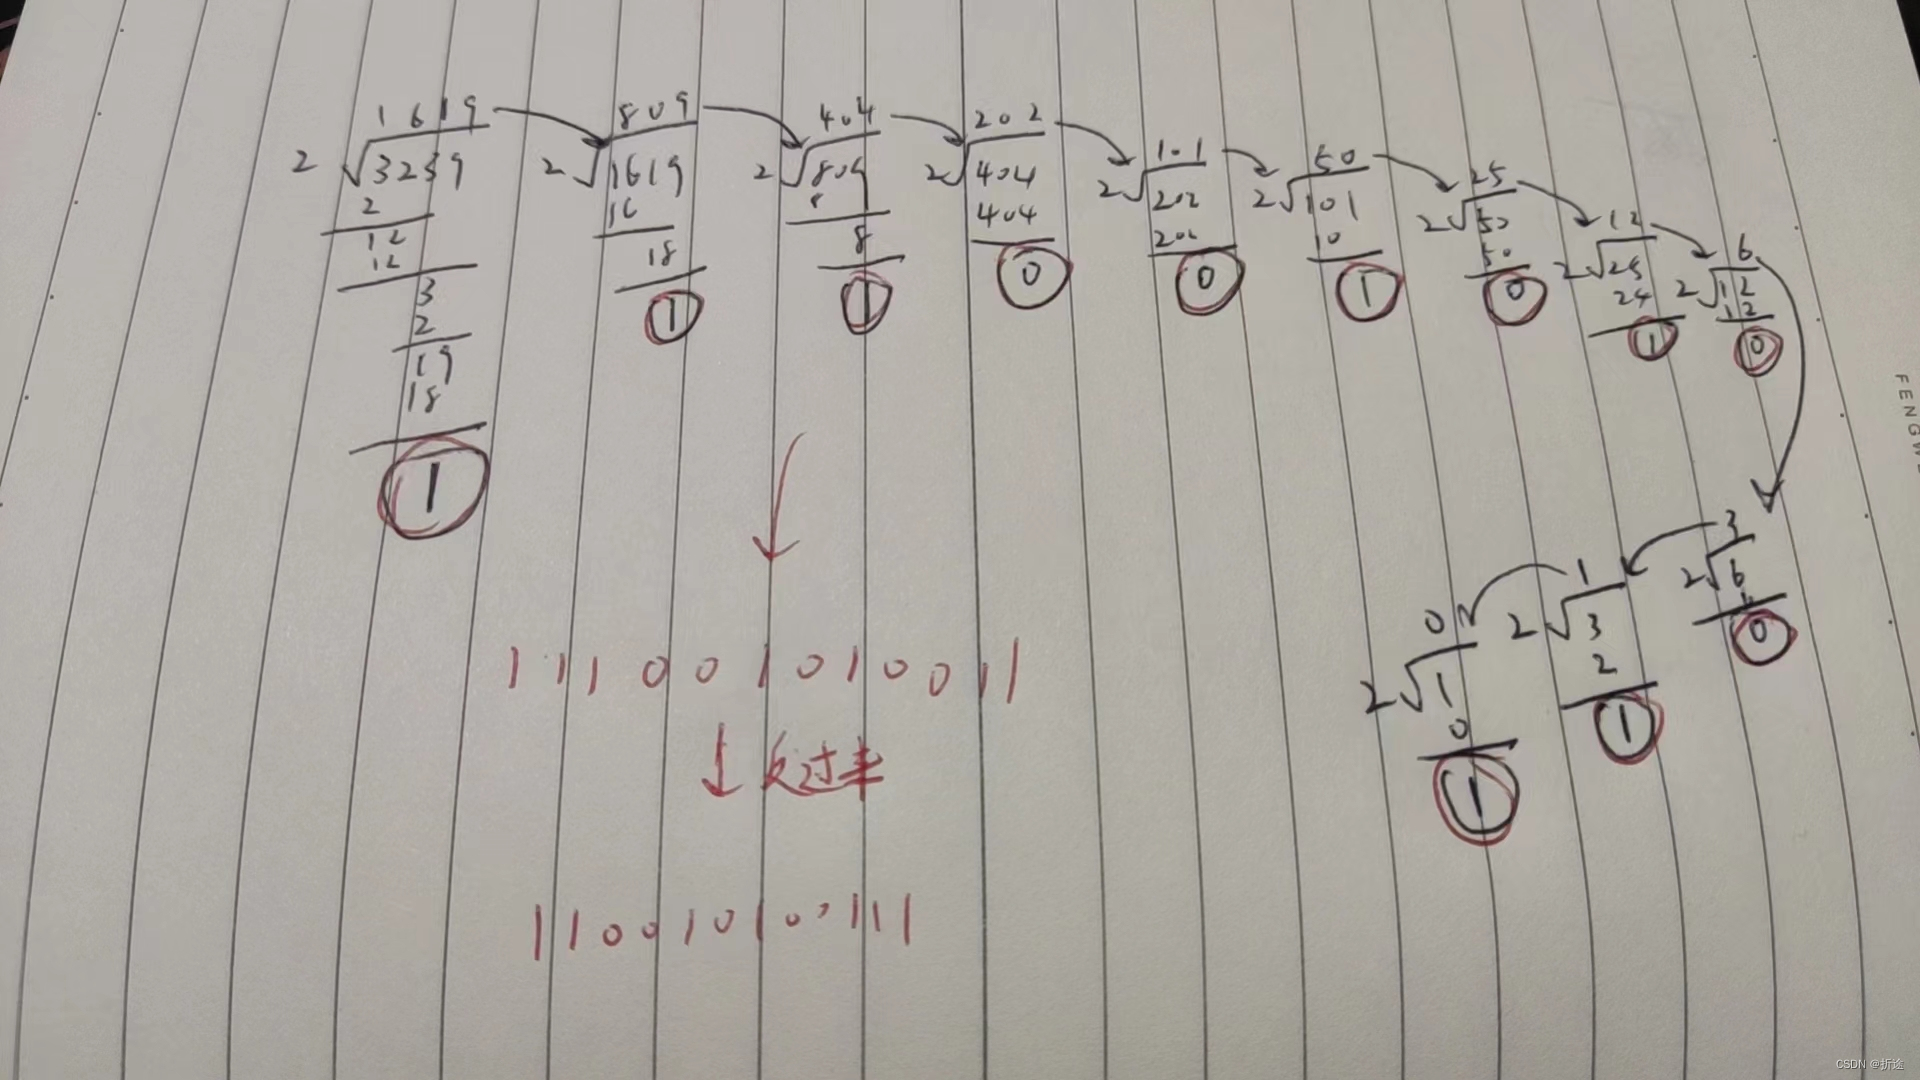 1619 809 404 202 101 50 25 12 6
2√3239 2√1619 2√809 2√404 2√202 2√101 2√50 2√25 2√12
2 16 8 404 202 10 50 24 12
12 18 8 0 0 1 0 1 0
12 1 1
3
2
19
18
1
3
2√6
6
0
1
2√3
2
1
0
2√1
0
1
111001010011
↓反过来
110010100111
FENGW
CSDN @折途